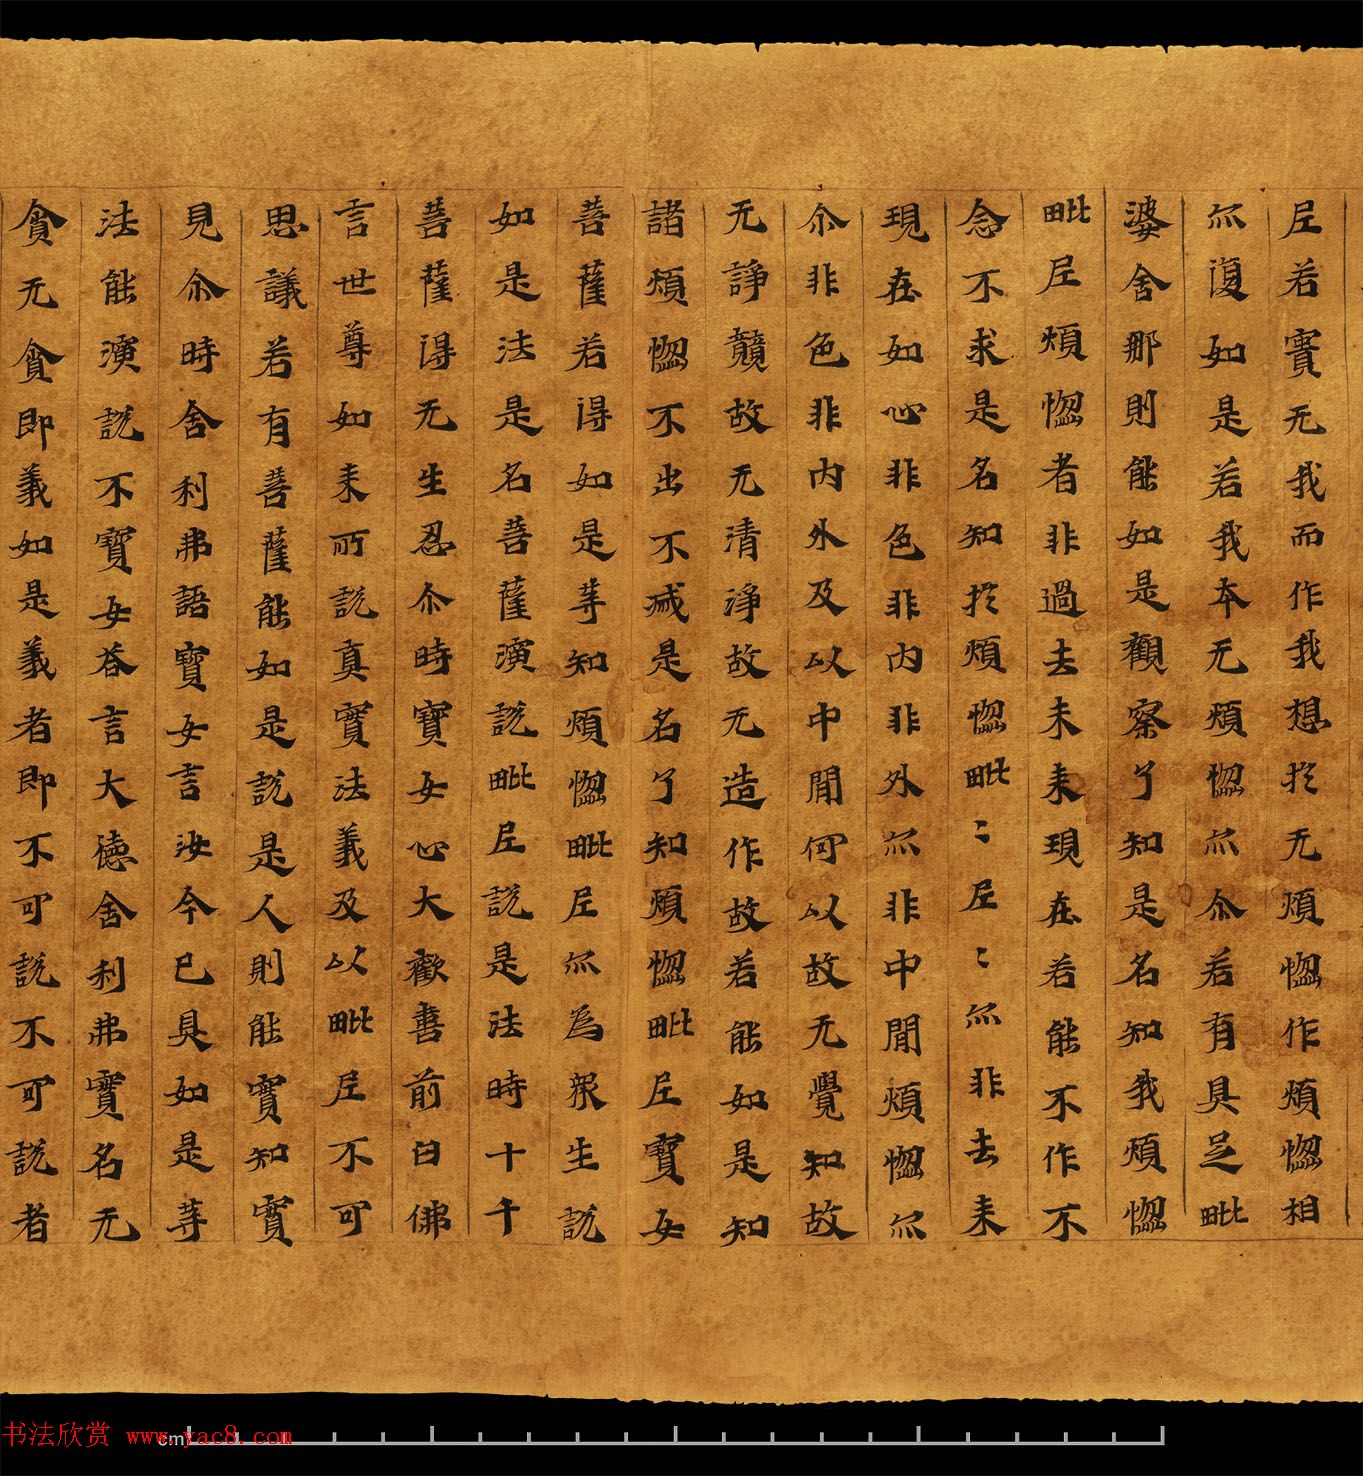 尼若實无我而作我想於无煩惱作煩惱相
亦復如是若我本无煩惱亦尒若有具足毗
婆舍那則能如是觀察了知是名知我煩惱
毗尼煩惱者非過去未來現在若能不作不
念不求是名知於煩惱毗〻尼〻亦非去來
現在如心非色非內非外亦非中間煩惱亦
尒非色非內外及以中間何以故无覺知故
无諍競故无清淨故无造作故若能如是知
諸煩惱不出不滅是名了知煩惱毗尼寶女
菩薩若得如是等知煩惱毗尼亦為眾生說
如是法是名菩薩演說毗尼說是法時十千
菩薩得无生忍尒時寶女心大歡喜前白佛
言世尊如來所說真實法義及以毗尼不可
思議若有菩薩能如是說是人則能實知實
見尒時舍利弗語寶女言汝今已具如是等
法能演說不寶女荅言大德舍利弗實名无
貪无貪即義如是義者即不可說不可說者
書法欣赏 www.yac8.com
cm